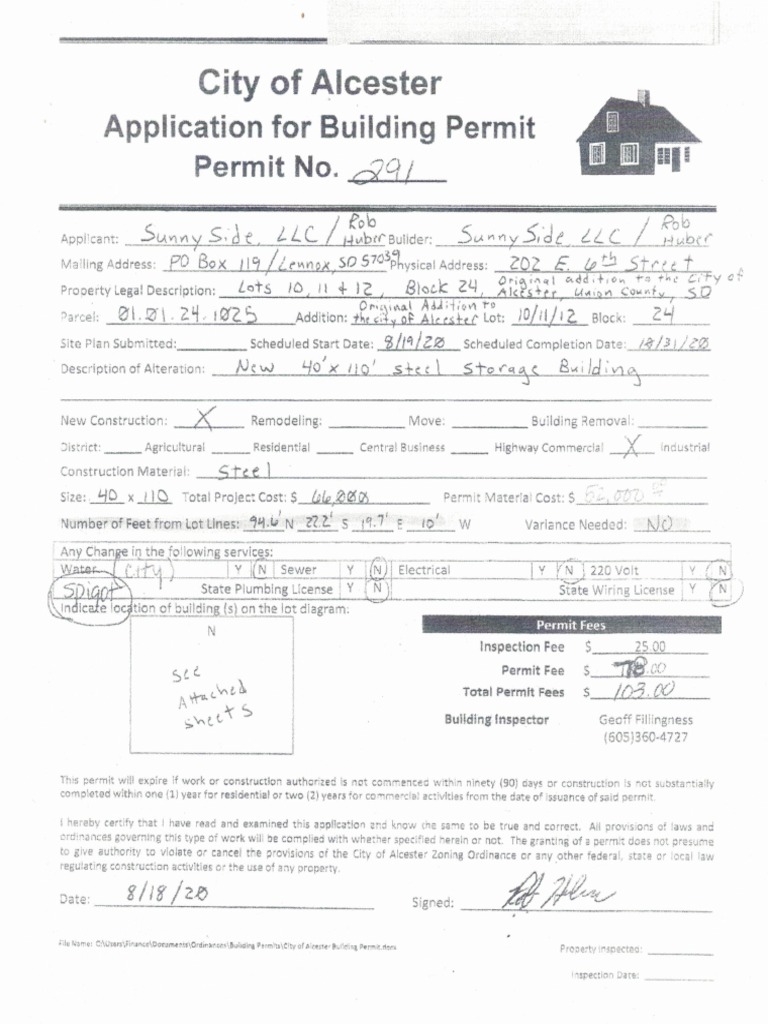 City of Alcester
Application for Building Permit
Permit No. 291
Applicant: Sunny Side, LLC / Rob Huber Builder: Sunny Side, LLC / Rob Huber
Mailing Address: PO Box 119 / Lennox, SD 57039 Physical Address: 202 E. 6th Street
Property Legal Description: Lots 10, 11 & 12, Block 24, Original addition to the City of Alcester, Union County, SD
Parcel: 01.01.24.1025 Addition: Original Addition to the city of Alcester Lot: 10/11/12 Block: 24
Site Plan Submitted: Scheduled Start Date: 8/19/20 Scheduled Completion Date: 12/31/20
Description of Alteration: New 40' x 110' Steel Storage Building
New Construction: X Remodeling: Move: Building Removal:
District: Agricultural Residential Central Business Highway Commercial X Industrial
Construction Material: Steel
Size: 40 x 110 Total Project Cost: $ 66,000 Permit Material Cost: $ 52,000
Number of Feet from Lot Lines: 94.6' N 22.2' S 19.7' E 10' W Variance Needed: NO
Any Change in the following services:
Water (City) Y N Sewer Y N Electrical Y N 220 Volt Y N
Spigot State Plumbing License Y N State Wiring License Y N
Indicate location of building (s) on the lot diagram:
N
See
Attached
sheets
Permit Fees
Inspection Fee $ 25.00
Permit Fee $ 78.00
Total Permit Fees $ 103.00
Building Inspector Geoff Fillingness
(605)360-4727
This permit will expire if work or construction authorized is not commenced within ninety (90) days or construction is not substantially
completed within one (1) year for residential or two (2) years for commercial activities from the date of issuance of said permit.
I hereby certify that I have read and examined this application and know the same to be true and correct. All provisions of laws and
ordinances governing this type of work will be complied with whether specified herein or not. The granting of a permit does not presume
to give authority to violate or cancel the provisions of the City of Alcester Zoning Ordinance or any other federal, state or local law
regulating construction activities or the use of any property.
Date: 8/18/20 Signed:
File Name: C:\Users\Finance\Documents\Ordinances\Building Permits\City of Alcester Building Permit.docx
Property Inspected:
Inspection Date: